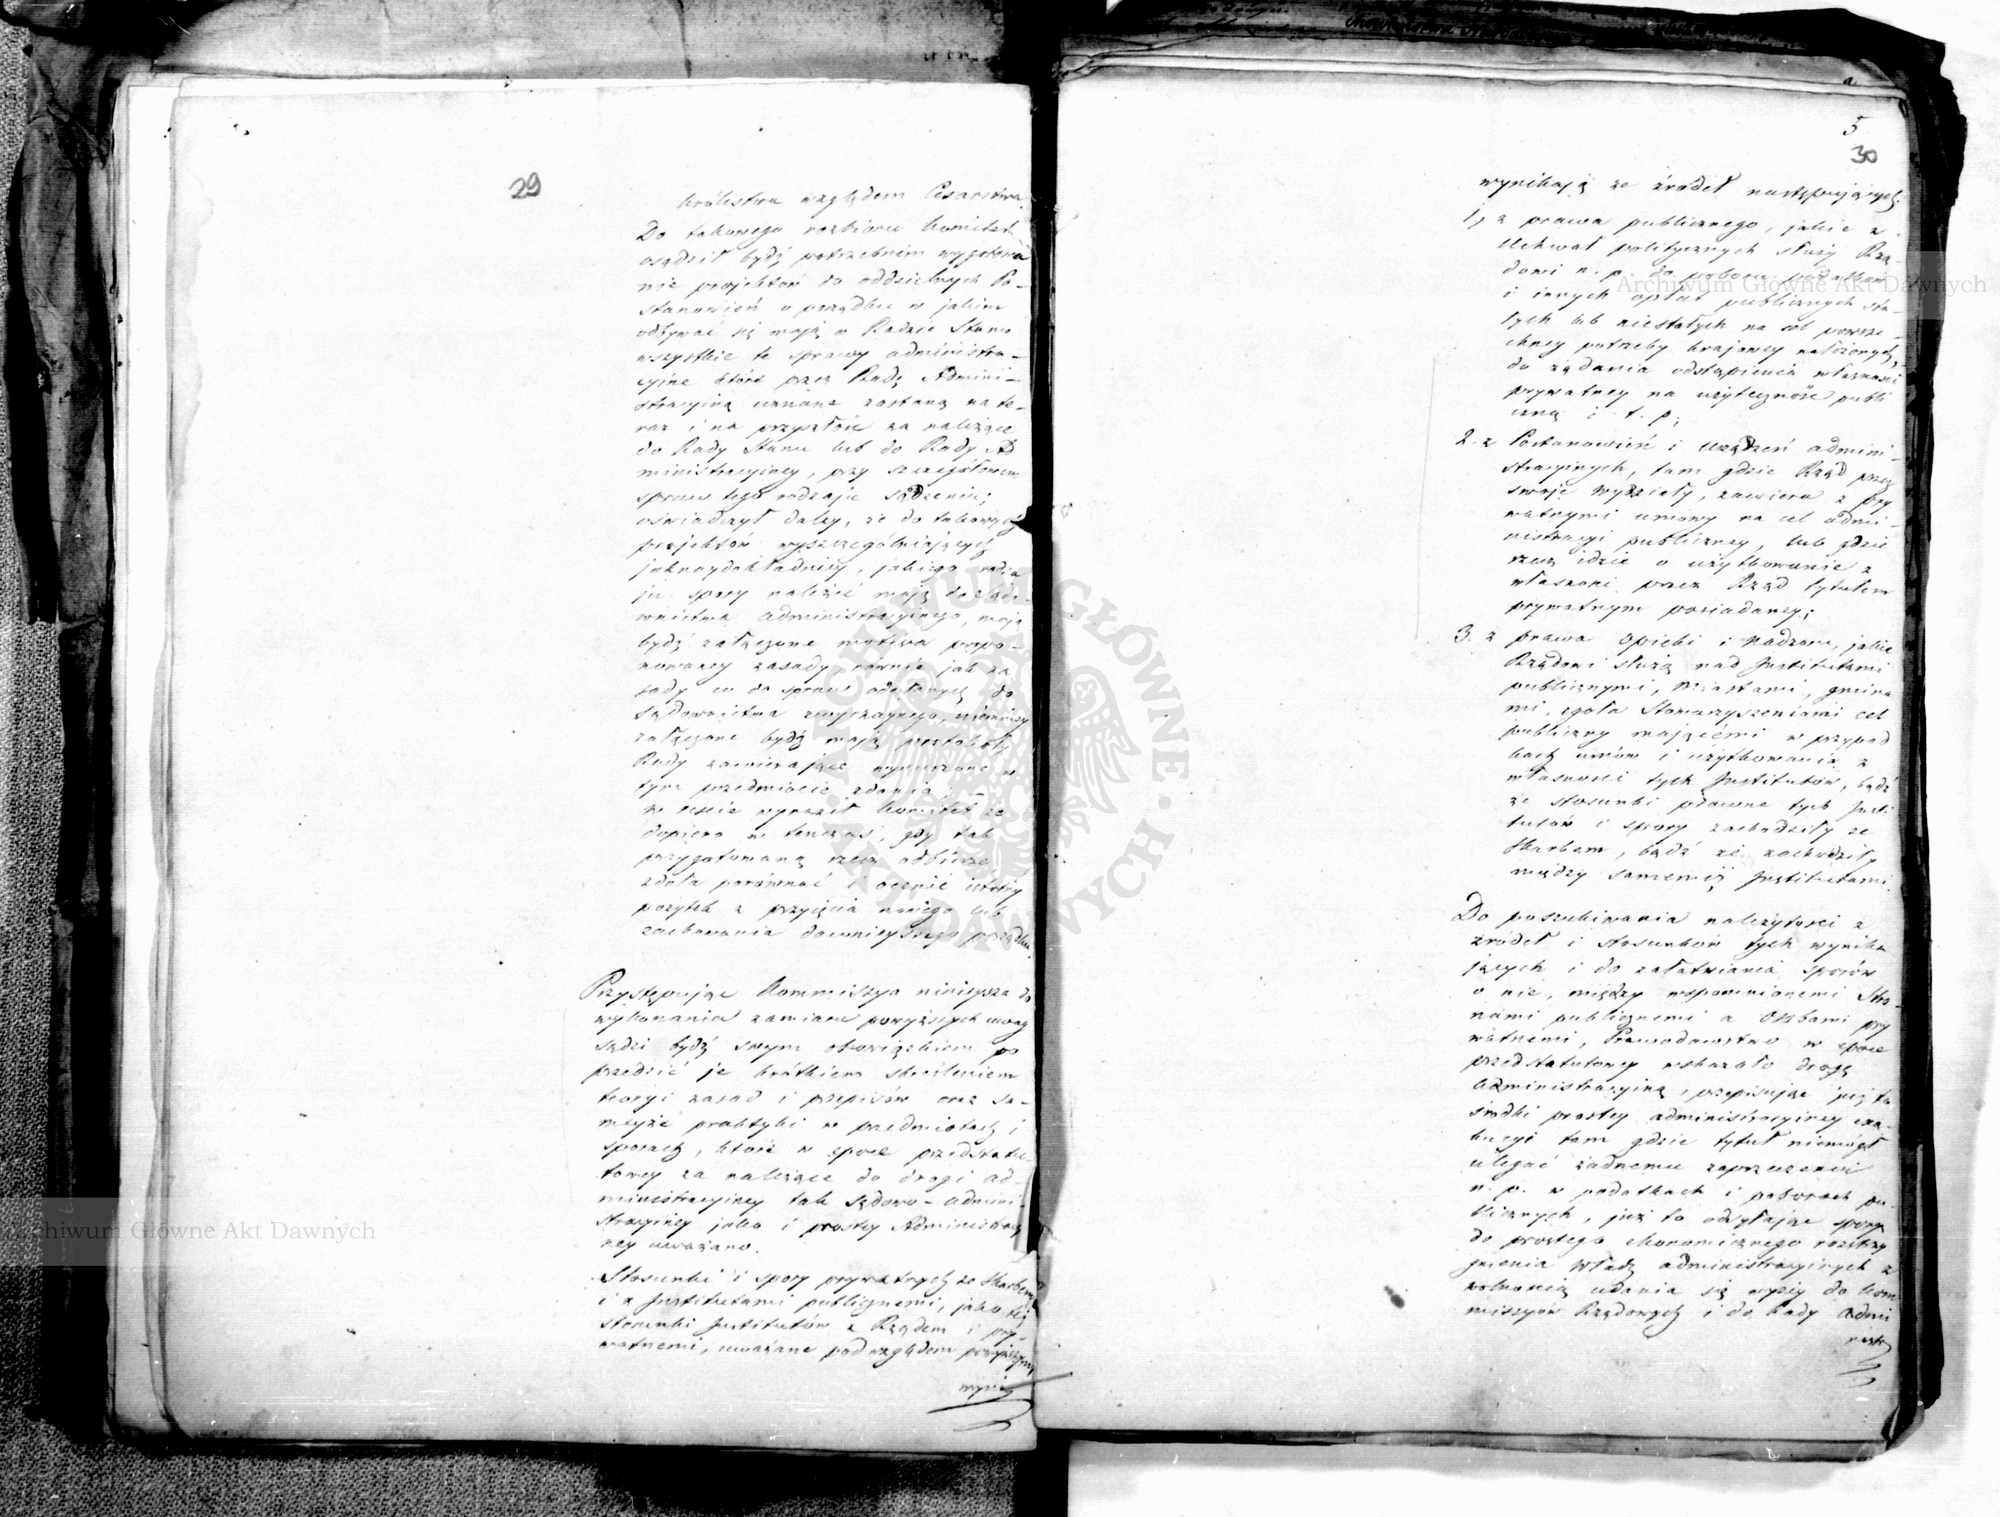 29
królestwa względem Cesarstwa.
Do takowego rozbioru Komitet
osądził bydź potrzebném wygotowa
nie projektów do oddzielnych Po-
stanowień o porządku w jakim
odbywać się mają w Radzie Stanu
wszystkie te sprawy administra-
cyjne które przez Radę Admini-
stracyjną uznane zostaną na te-
raz i na przyszłość za należące
do Rady Stanu lub do Rady Ad
ministracyjney, przy szczegółowem
spraw tego rodzaju sądzeniu;
oświadczył daley, że do takowych
projektów wyszczególniających
jaknaydokładniey, jakiego rodza
ju spory należeć mają do Sądo-
wnictwa administracyjnego, mają
bydź załączone motiwa propo-
nowaney zasady równie jak za
sady co do spraw odesłanych do
sądownictwa zwyczaynego, niemniey
załączone bydź mają protokoły
Rady zawierające wynurzone w
tym przedmiocie zdania, –
w reście wyraził Komitet że
dopiero w tenczas, gdy tak
przygotowaną rzecz odbierze
zdoła porównać i ocenić istotny
pożytek z przyjęcia nowego lub
zachowania dawnieyszego porządku.
Przystępując Kommissya ninieysza do
wykonania zamiaru powyższych uwag
sądzi bydź swym obowiązkiem po
przedzić je krótkiem skreśleniem
teoryi zasad i przepisów oraz sa-
meyże praktyki w przedmiotach i
sporach, które w epoce przedstatu
towey za należące do drogi ad-
ministracyjney tak Sądowo-admini-
stracyjney jako i prostey Administracyj
ney uważano.
Stosunki i spory prywatnych ze Skarbem
i z Institutami publicznemi, jako też
stosunki Institutów z Rządem i pry-
watnemi, uważane pod względem powyższym
wynik
5
30
wynikają ze źródeł następujących:
1, z prawa publicznego, jakie z
Uchwał politycznych służy Rzą-
dowi n. p. do poboru podatków
i innych opłat publicznych sta-
łych lub niestałych na cel powsze-
chney potrzeby krajowey nałożonych,
do żądania odstąpienia własności
prywatney na użyteczność publi
czną i t. p;
2. z Postanowień i urządzeń admini-
stracyjnych, tam gdzie Rząd przez
swoje wydziały, zawiera z pry
watnymi umowy na cel admi-
nistracyi publiczney, lub gdzie
rzecz idzie o użytkowanie z
własności przez Rząd tytułem
prywatnym posiadaney;
3. z prawa opieki i nadzoru, jakie
Rządowi służą nad Institutami
publicznymi, Miastami, gmina
mi, zgoła Stowarzyszeniami cel
publiczny mającémi w przypad
kach umów i użytkowania z
własności tych Institutów, bądź
że stosunki prawne tych Insti
tutów i spory zachodziły ze
Skarbem, bądź że zachodziły
między samemiż Institutami.
Do poszukiwania należytości z
źródeł i stosunków tych wynika
jących i do załatwiania sporów
o nie, między wspomnionemi Stro-
nami publicznemi a Osobami pry
watnemi, Prawodawstwo w epoce
przedstatutowey wskazało drogę
administracyjną, przepisując już to
środki prostey administracyjney exe-
kucyi tam gdzie tytuł niemógł
ulegać żadnemu zaprzeczeniu
n. p. w podatkach i poborach pu-
blicznych, już to odsyłając spory
do prostego ekonomicznego rozstrzy
gnienia Władz administracyjnych z
wolnością udania się wyżey do Kom
missyów Rządowych i do Rady Admi
nistr